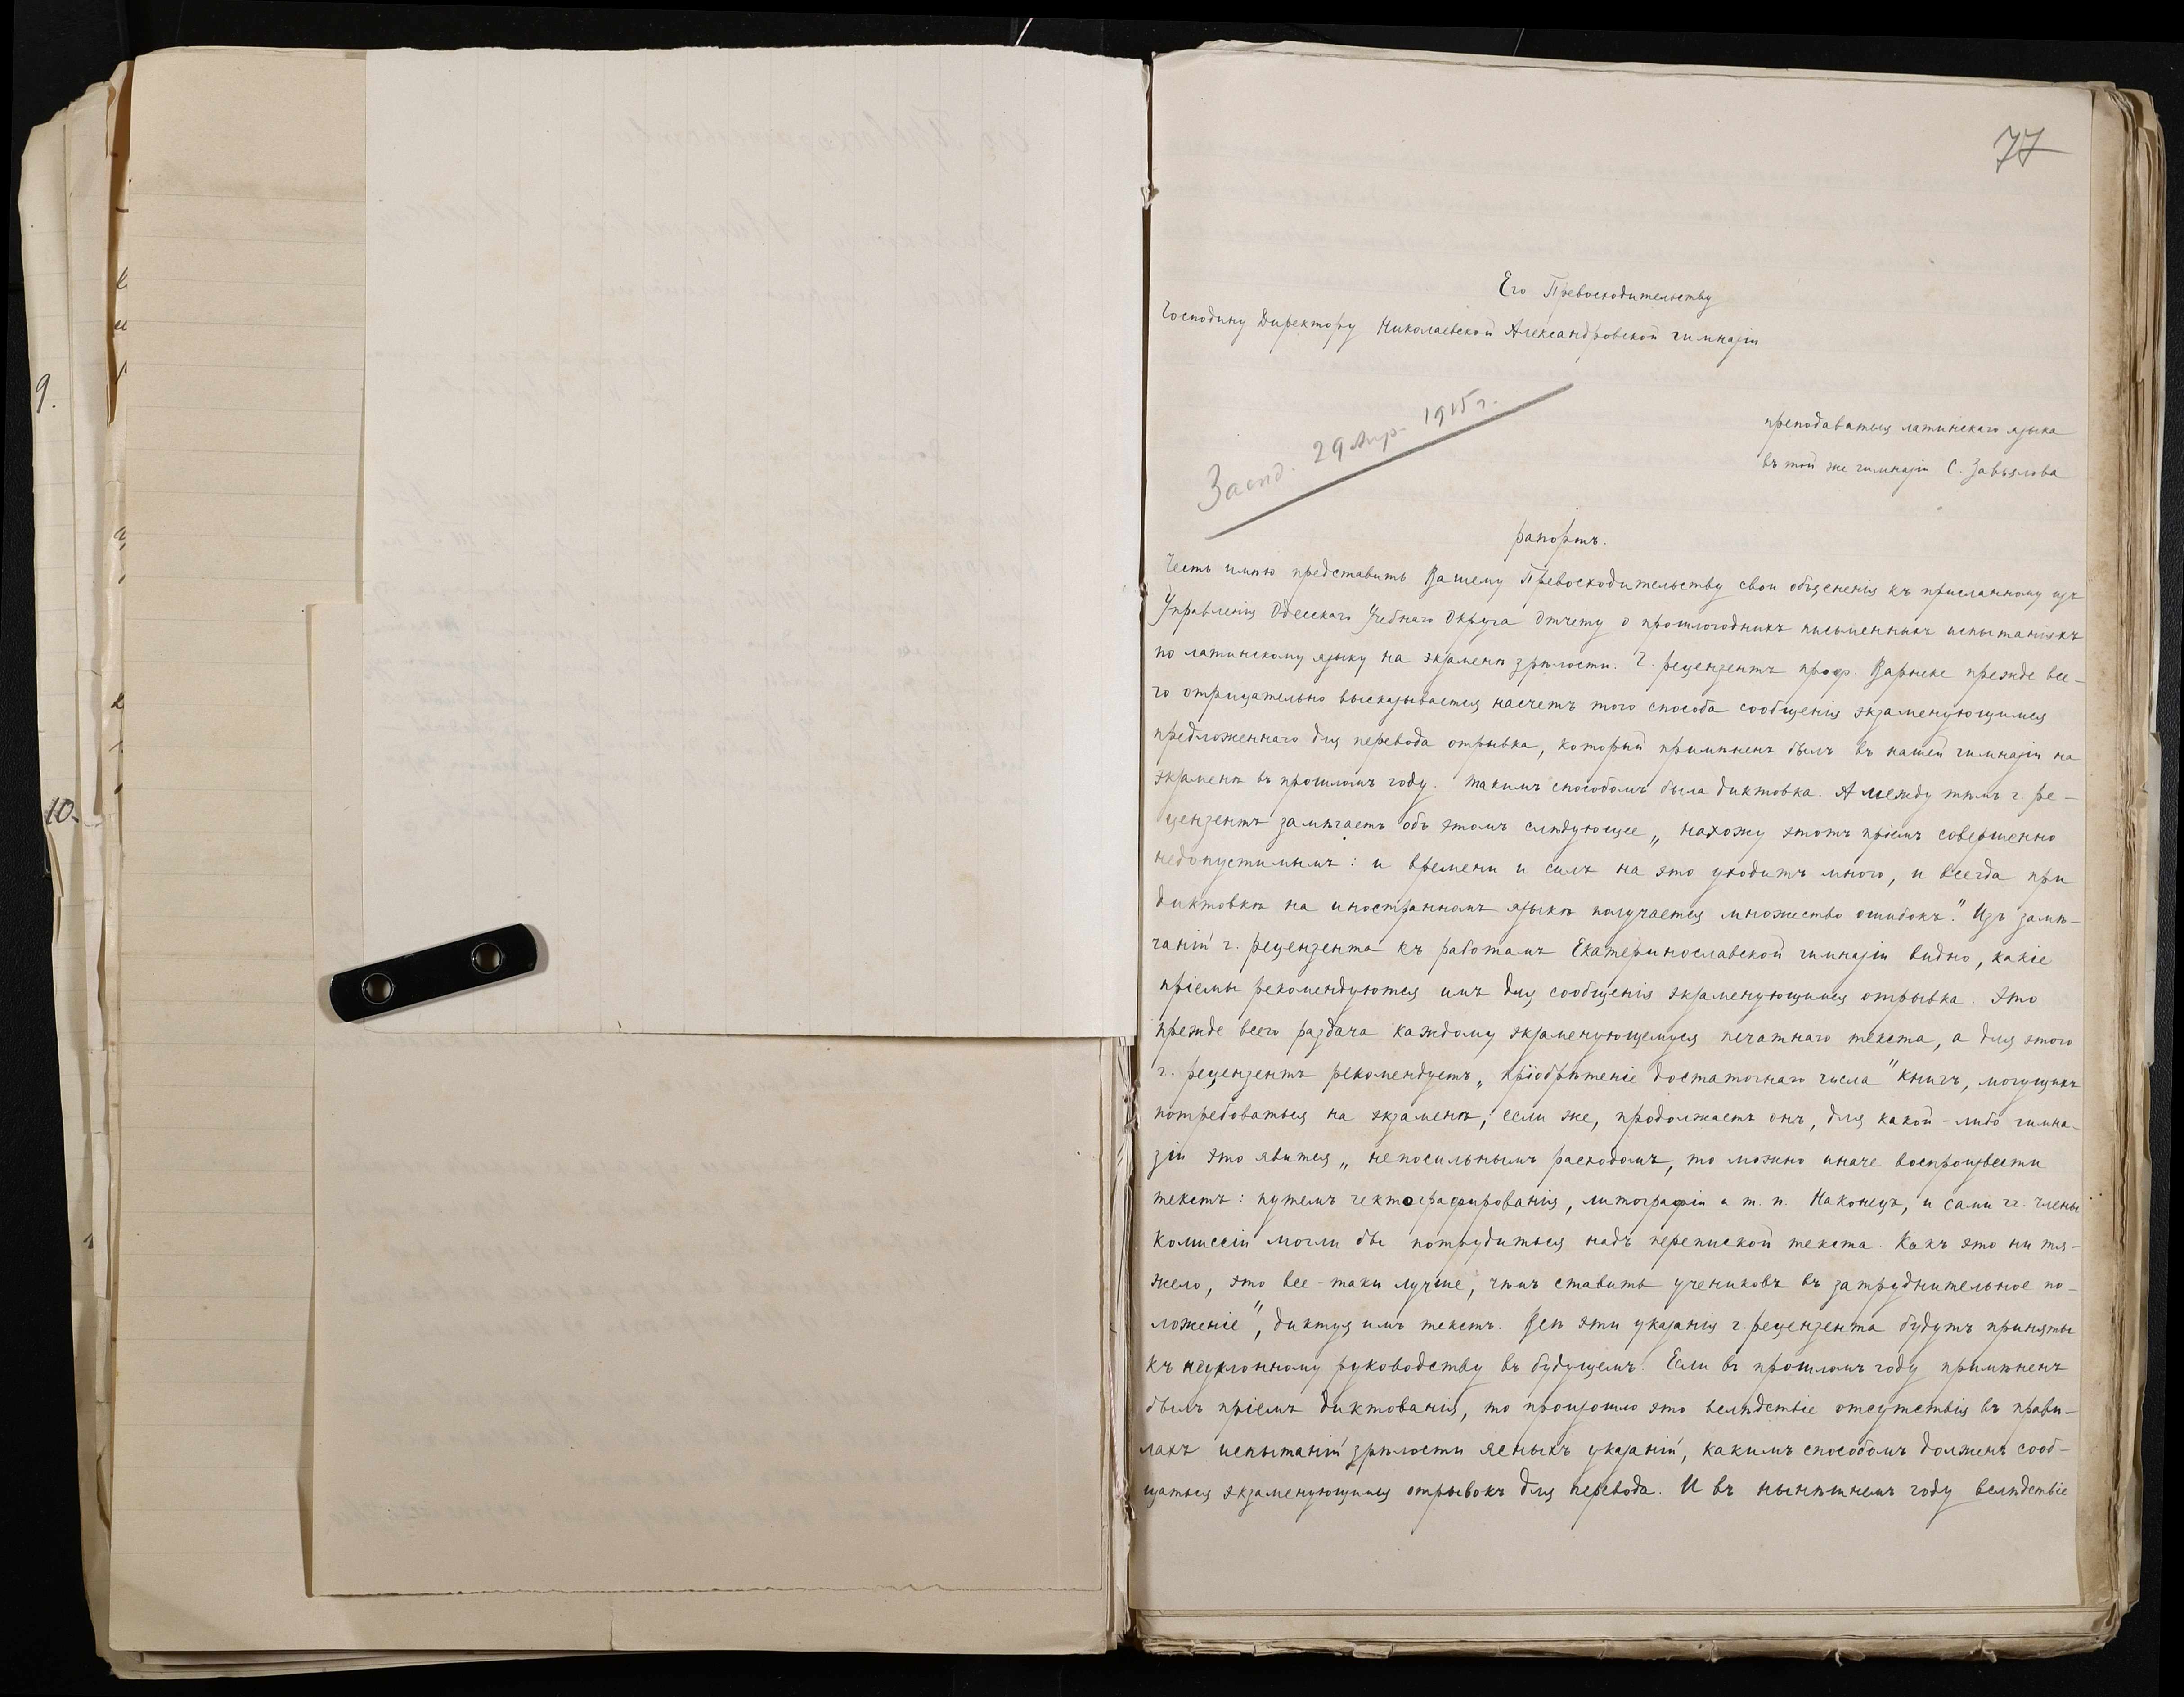 9.
10.
77
Его Превосходительству
Господину Директору Николаевской Александровской гимназіи
Засѣд. 29 Апр. 1915 г.
преподавателя латинскаго языка
въ той же гимназіи С. Завьялова
рапортъ.
Честь имѣю представить Вашему Превосходительству свои объясненія къ присланному изъ
Управленія Одесскаго Учебнаго Округа Отчету о прошлогоднихъ письменныхъ испытаніяхъ
по латинскому языку на экзаменѣ зрѣлости. Г. рецензентъ проф. Варнеке прежде все-
го отрицательно высказывается насчетъ того способа сообщенія экзаменующимся
предложеннаго для перевода отрывка, который примѣненъ былъ въ нашей гимназіи на
экзаменѣ въ прошломъ году. Такимъ способомъ была диктовка. А между тѣмъ г. ре-
цензентъ замѣчаетъ объ этомъ слѣдующее „нахожу этотъ пріемъ совершенно
недопустимымъ: и времени и силъ на это уходитъ много, и всегда при
диктовкѣ на иностранномъ языкѣ получается множество ошибокъ." Изъ замѣ-
чаній г. рецензента къ работамъ Екатеринославской гимназіи видно, какіе
пріемы рекомендуются имъ для сообщенія экзаменующимся отрывка. Это
прежде всего раздача каждому экзаменующемуся печатнаго текста, а для этого
г. рецензентъ рекомендуетъ „пріобрѣтеніе достаточнаго числа" книгъ, могущихъ
потребоваться на экзаменѣ; если же, продолжаетъ онъ, для какой-либо гимна-
зіи это явится „непосильнымъ расходомъ, то можно иначе воспроизвести
текстъ: путемъ гектографированія, литографіи и т. п. Наконецъ, и сами гг. члены
комиссіи могли бы потрудиться надъ перепиской текста. Какъ это ни тя-
жело, это все-таки лучше, чѣмъ ставить учениковъ въ затруднительное по-
ложеніе", диктуя имъ текстъ. Всѣ эти указанія г. рецензента будутъ приняты
къ неуклонному руководству въ будущемъ. Если въ прошломъ году примѣненъ
былъ пріемъ диктованія, то произошло это вслѣдствіе отсутствія въ прави-
лахъ испытаній зрѣлости ясныхъ указаній, какимъ способомъ долженъ сооб-
щаться экзаменующимся отрывокъ для перевода. И въ нынѣшнемъ году вслѣдствіе